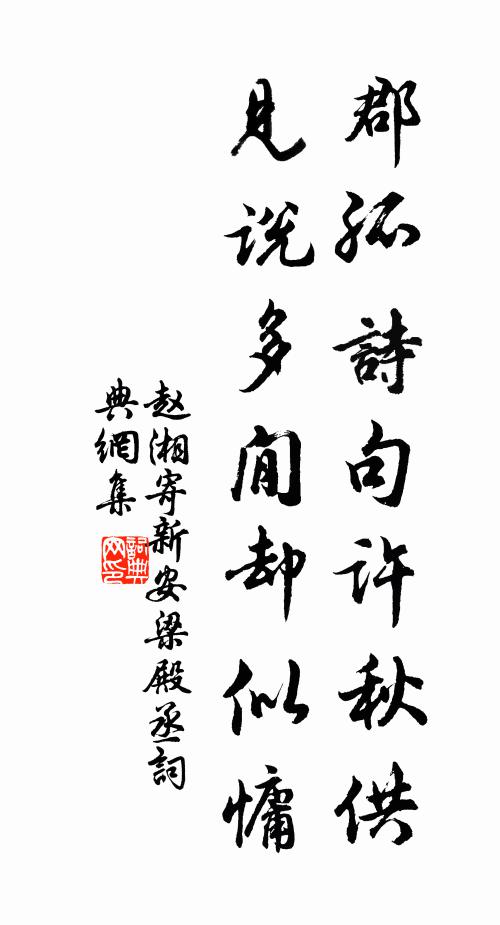 郡孤詩句許秋供
見說多閒却似慵
赵湘寄新安梁殿丞詞
典網集
詞典
网印